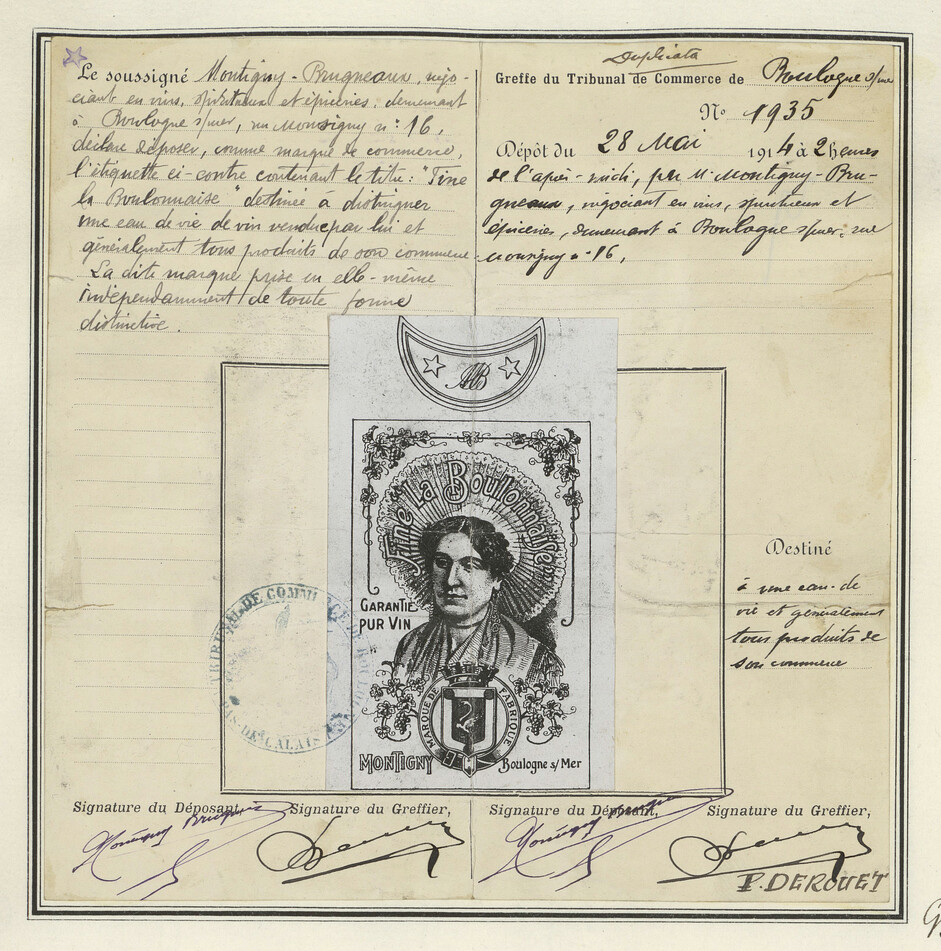 Le soussigné Montigny-Brugneaux, négo-
ciant en vins, spiritueux et épiceries, demeurant
à Boulogne s/mer, rue Monsigny n° 16,
déclare déposer, comme marque de commerce,
l'étiquette ci-contre contenant le titre: "Fine
la Boulonnaise" destinée à distinguer
une eau de vie de vin vendue par lui et
généralement tous produits de son commerce.
La dite marque prise en elle-même
indépendamment de toute forme
distinctive.
Duplicata
Greffe du Tribunal de Commerce de Boulogne s/mer
N° 1935
Dépôt du 28 Mai 1914 à 2 heures
de l'après-midi, par M. Montigny-Bru-
gneaux, négociant en vins, spiritueux et
épiceries, demeurant à Boulogne s/mer, rue
Monsigny n° 16,
Fine La Boulonnaise
GARANTIE
PUR VIN
MARQUE DE FABRIQUE
MONTIGNY Boulogne s/ Mer
TRIBUNAL DE COMMERCE DE BOULOGNE
PAS-DE-CALAIS
Destiné
à une eau-de
vie et généralement
tous produits de
son commerce
Signature du Déposant, Signature du Greffier,
Signature du Déposant, Signature du Greffier,
Montigny Brugneaux
Montigny Brugneaux
P. DEROUET